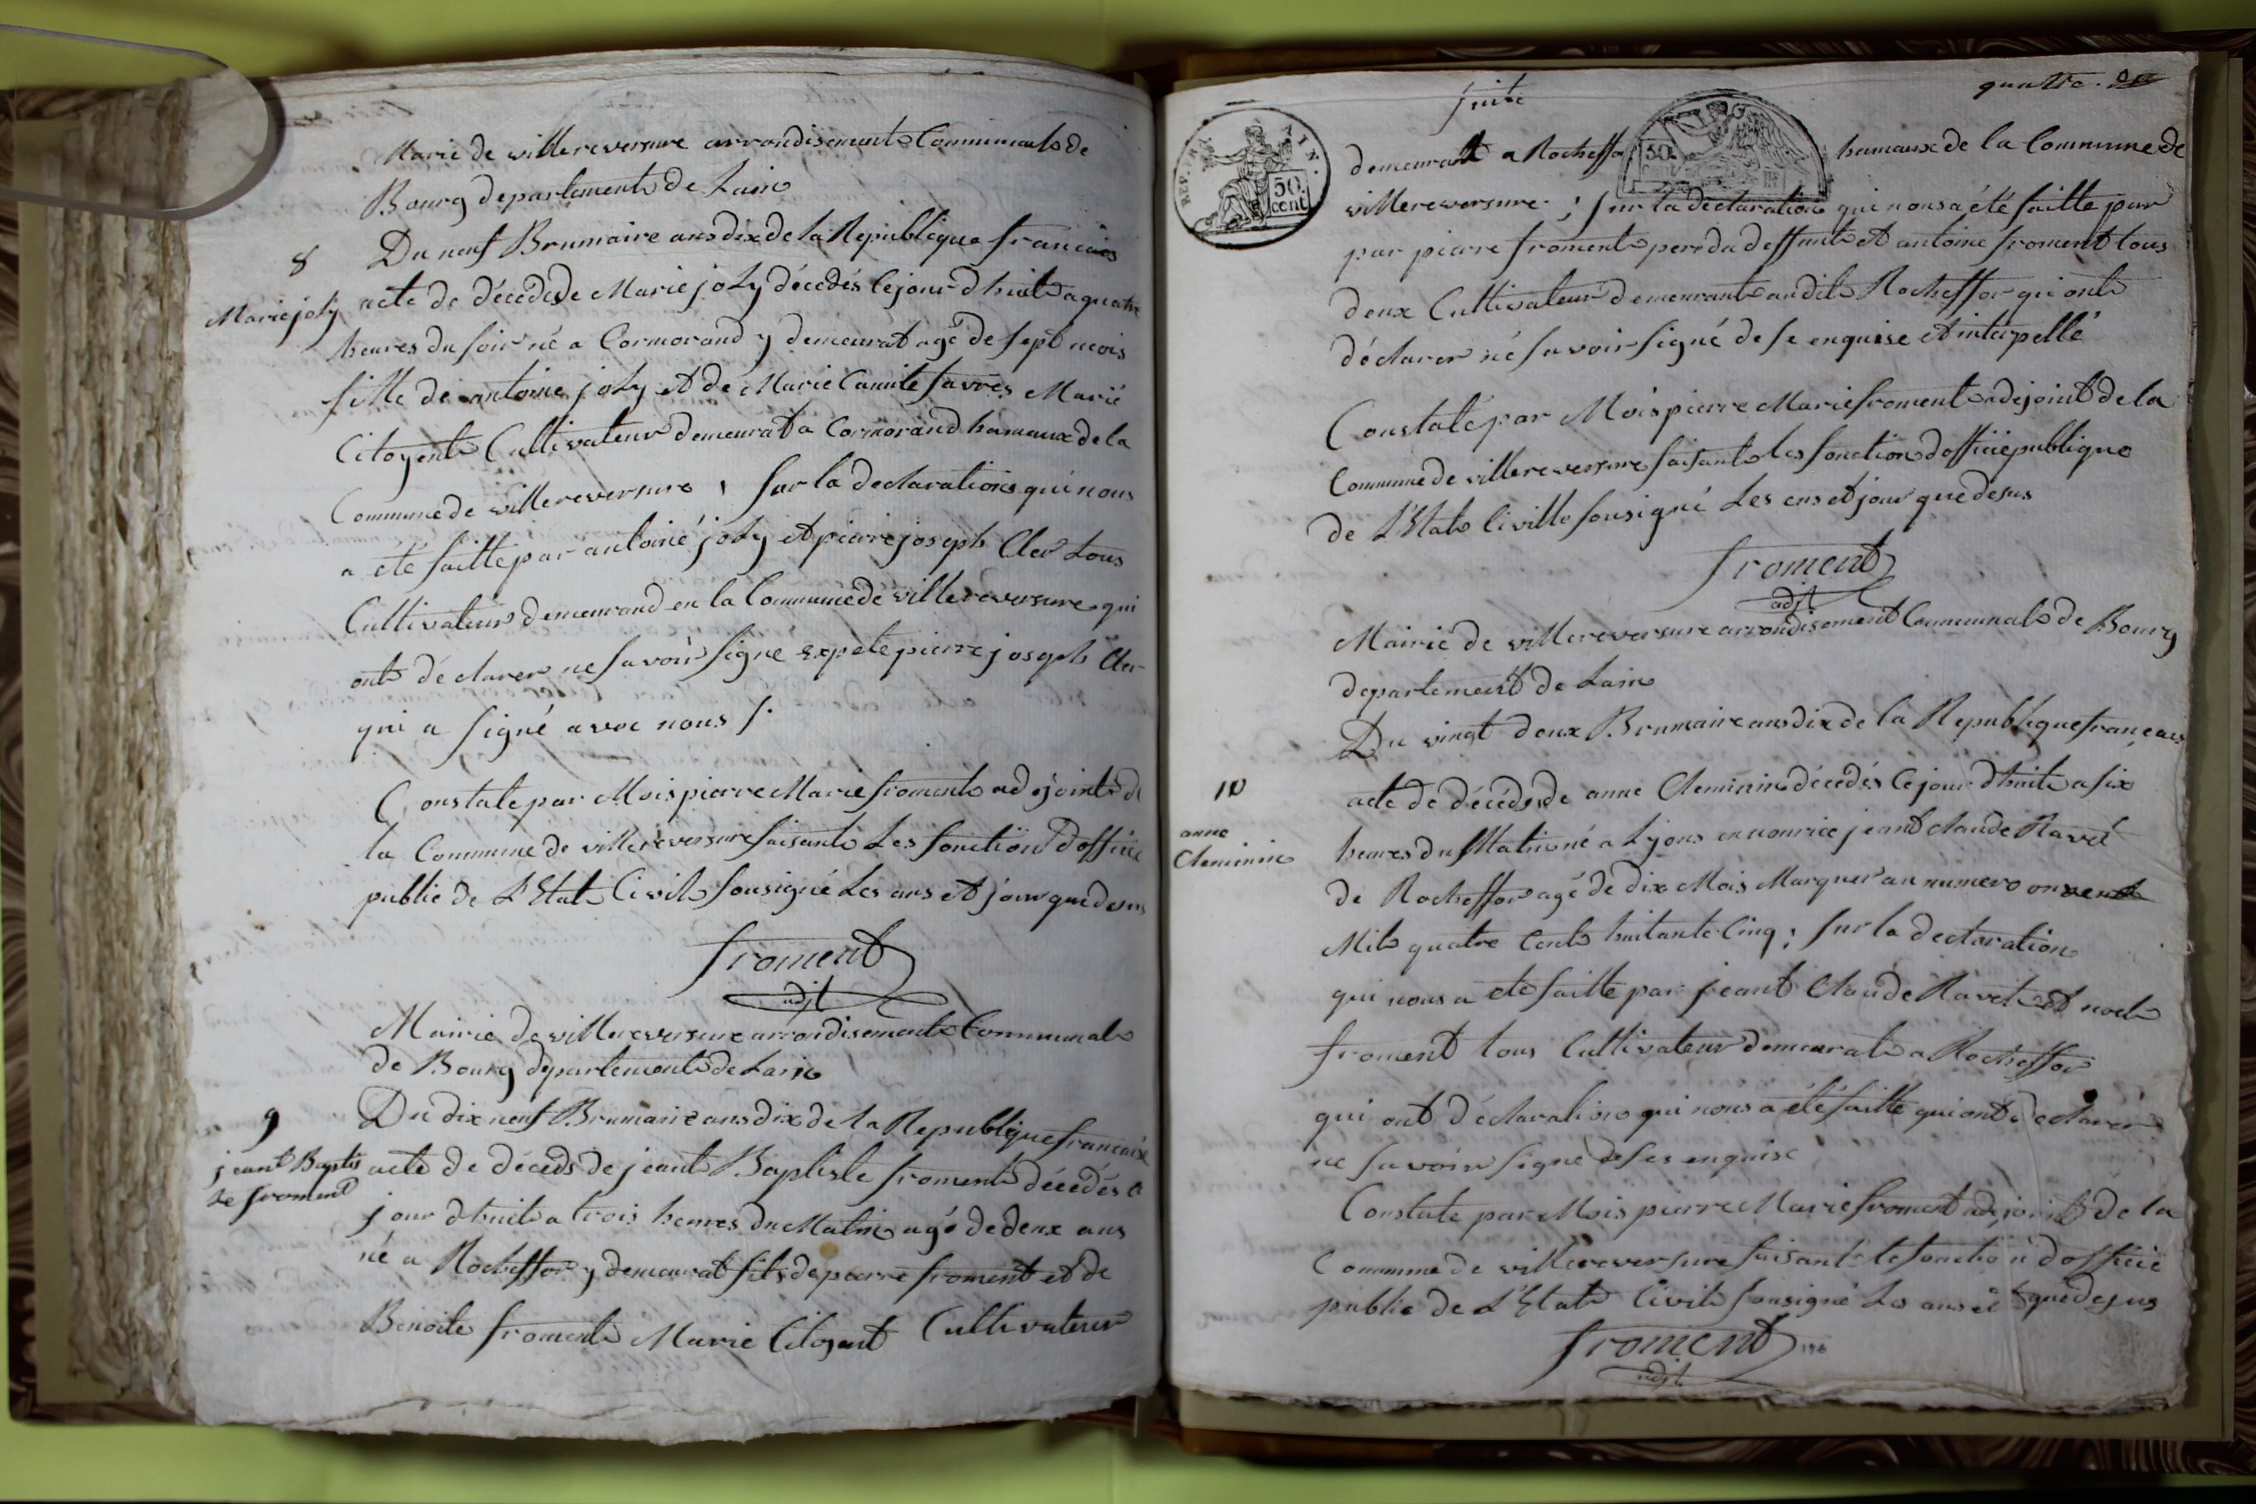 Marie de villereversure arrondisement Communals de
Bourg departement de Lain
8
Du neuf Brumaire ans dix de la Republique francais
Marie joly
acte de décèdes de Marie joLy décedés ce jour dhuit a quatre
heures du soir né a Cormorand y demeurat agé de sept mois
fille de antoine joLy et de Marie Camile favres Marié
Citoyent Cultivateur demeurat a Cormorand hamaux de la
Commune de villereversure ; sur la declarations qui nous
a été faitte par antoine joLy et pierre joseph Cler tous
Cultivateur demeurand en la Commune de villereversure qui
ont déclarer ne savoir signé expete pierre joseph Cler
qui a signé avec nous s.
Constate par Mois pierre Marie froment adejoint de
la Commune de villereversure faisant Les fonction doffice
public de L'Etat Civil sousigné Les ans et jour que desus
froment
adjt
Mairie de villereversure arrondisement Communal
de Bourg departement de Lain
9
Du dix neuf Brumaire ans dix de la Republique francaise
jeant Baptis
te froment
acte de décèds de jeant Baptiste froment décedés ce
jour dhuit a trois heures du Matin agé de deux ans
né a Rocheffor y demeurat fils de pierre froment et de
Benoite froment Marie Citoyant Cultivateur
suite
quatre.
REP. FRA. AIN.
50
cent
50
demeurant a Rocheffor hamaux de la Commune de
villereversure ; sur la declaration qui nous a été faitte par
par pierre froment pere du deffunt et antoine froment tous
deux Cultivateur demeurant audit Rocheffor qui ont
déclarer né savoir signé de se enquise et interpellé
Constaté par Mois pierre Marie froment adejoint de la
Commune de villereversure faisant les fonction doffice publique
de L'Etat Civille sousigné Les ens et jour que desus
froment
adjt
Mairie de villereversure arrondisement Communal de Bourg
departement de Lain
Du vingt deux Brumaire ans dix de la Republique français
10
anne
Cleminin
acte de décédes de anne Cleminin décedés ce jour dhuit a six
heures du Matin né a Lyons en nourice jeant claude Ravet
de Rocheffor agé de dix Mois Marquer au numero onze
Mil quatre Cent huitante Cinq ; sur la declaration
qui nous a été faitte par jeant Claude Ravet et noel
froment tous Cultivateur demeurat a Rocheffor
qui ont déclaration qui nous a été faitte qui ont declarer
ne savoir signé de ses enquise
Constate par Mois pierre Marie froment adejoint de la
Commune de villereversure faisant le fonction doffice
public de L'Etat Civil sousigné Les ans et que desus
froment
adjt